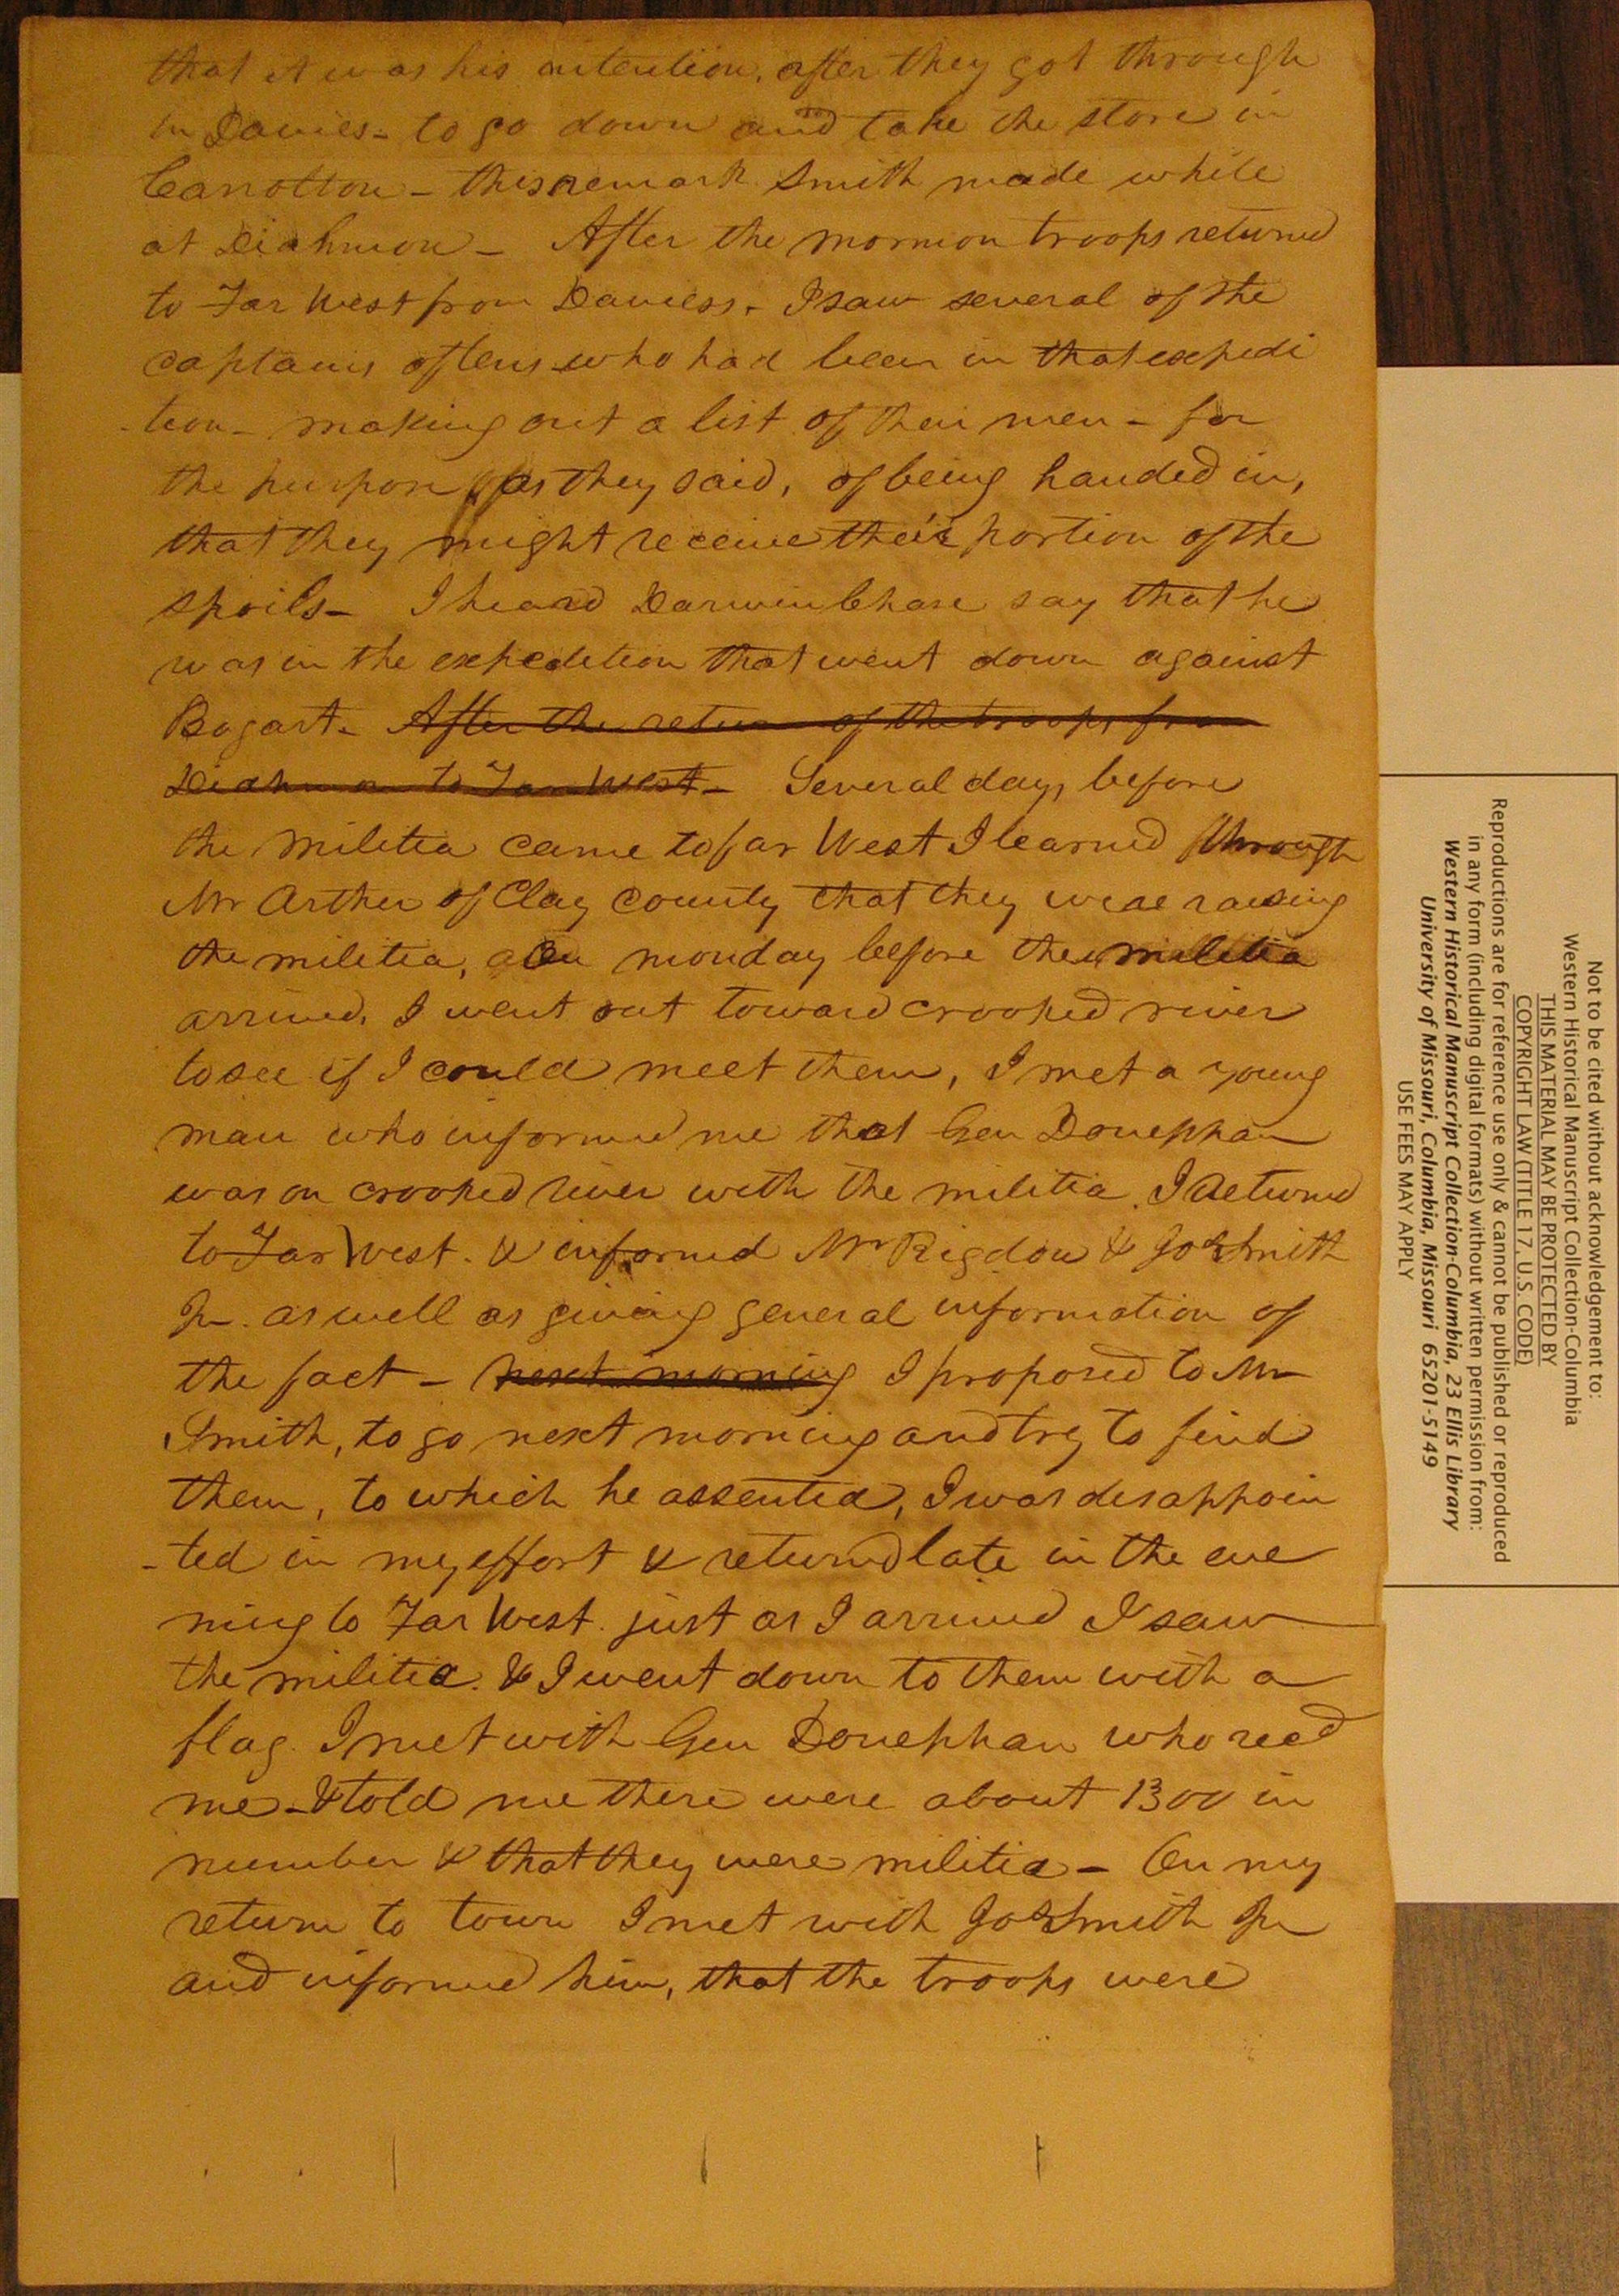 that it was his intention, after they got through
in Davies - to go down and take the store in
Carrolton - this remark Smith made while
at Diahmon - After the mormon troops returned
to Far West from Daviess. I saw several of the
captains of tens who had been in that expedi
-tion - making out a list of their men - for
the purpose, as they said, of being handed in,
that they might receive their portion of the
spoils - I heard Darwin Chase say that he
was in the expedition that went down against
Bogart. After the return of the troops from
Diahmon to Far West - Several days before
the militia came to far West I learned through
Mr Arther of Clay County that they were raising
the militia, on monday before the militia
arrived, I went out toward crooked river
to see if I could meet them, I met a young
man who informed me that Gen Donephan
was on crooked river with the militia. I returned
to Far West. & informed Mr Rigdon & Jos Smith
Jr. as well as giving general information of
the fact - next morning I proposed to Mr
Smith, to go next morning and try to find
them, to which he assented, I was disappoin
-ted in my effort & returnd late in the eve
ning to Far West. just as I arrived I saw
the militia. & I went down to them with a
flag. I met with Gen Donephan who recd
me - & told me there were about 1300 in
number & that they were militia - On my
return to town I met with Jos Smith Jr
and informed him, that the troops were
Not to be cited without acknowledgement to:
Western Historical Manuscript Collection-Columbia
THIS MATERIAL MAY BE PROTECTED BY
COPYRIGHT LAW (TITLE 17, U.S. CODE)
Reproductions are for reference use only & cannot be published or reproduced
in any form (including digital formats) without written permission from:
Western Historical Manuscript Collection-Columbia, 23 Ellis Library
University of Missouri, Columbia, Missouri 65201-5149
USE FEES MAY APPLY